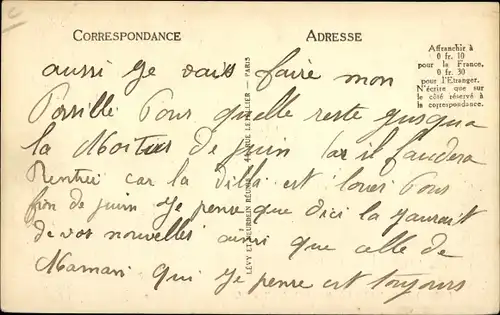 CORRESPONDANCE
ADRESSE
Affranchir à
0 fr. 10
pour la France.
0 fr. 30
pour l'Étranger.
N'écrire que sur
le côté réservé à
la correspondance.
aussi Je vais faire mon
Possible Pour quelle reste jusqua
la Moitier de juin Car il faudera
Rentrée car la Villa est louer Pour
fin de juin Je pense que dici la Jaurait
de vos nouvelles ainsi que celle de
Maman qui Je pense est toujours
LÉVY ET NEURDEIN RÉUNIS — 44, RUE LETELLIER — PARIS